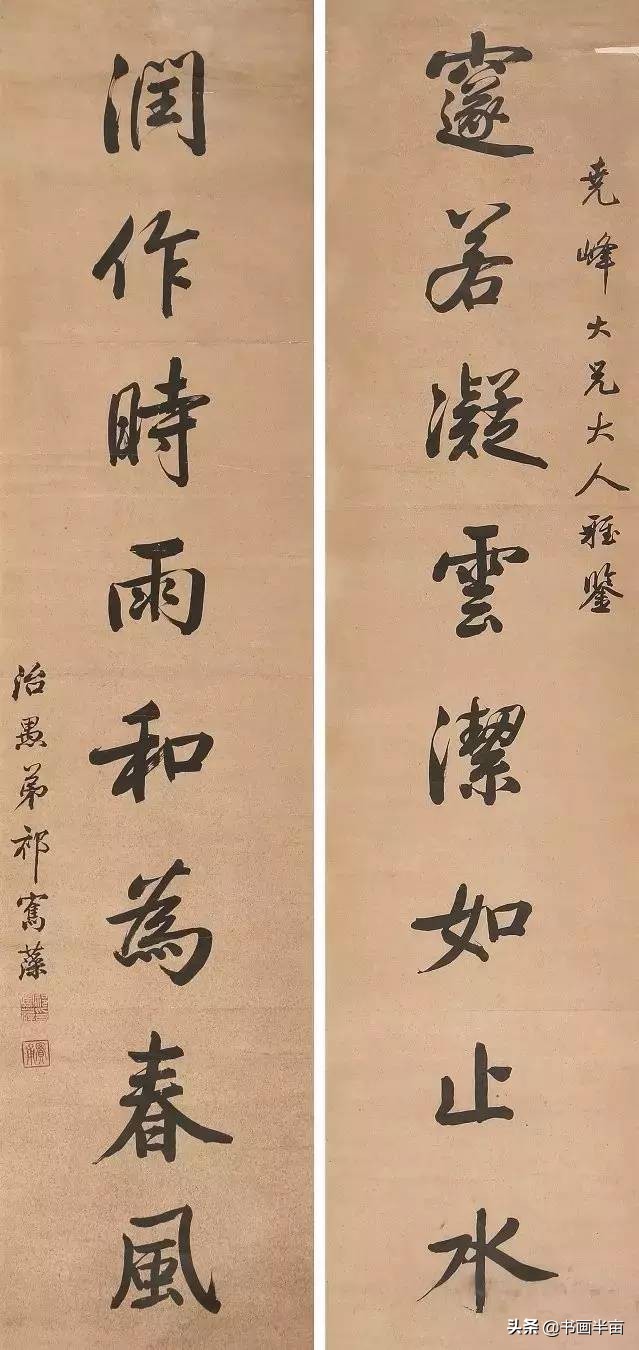 堯峰大兄大人雅鑒
邃若凝雲潔如止水
潤作時雨和為春風
治愚弟祁寯藻
头条 @书画半亩